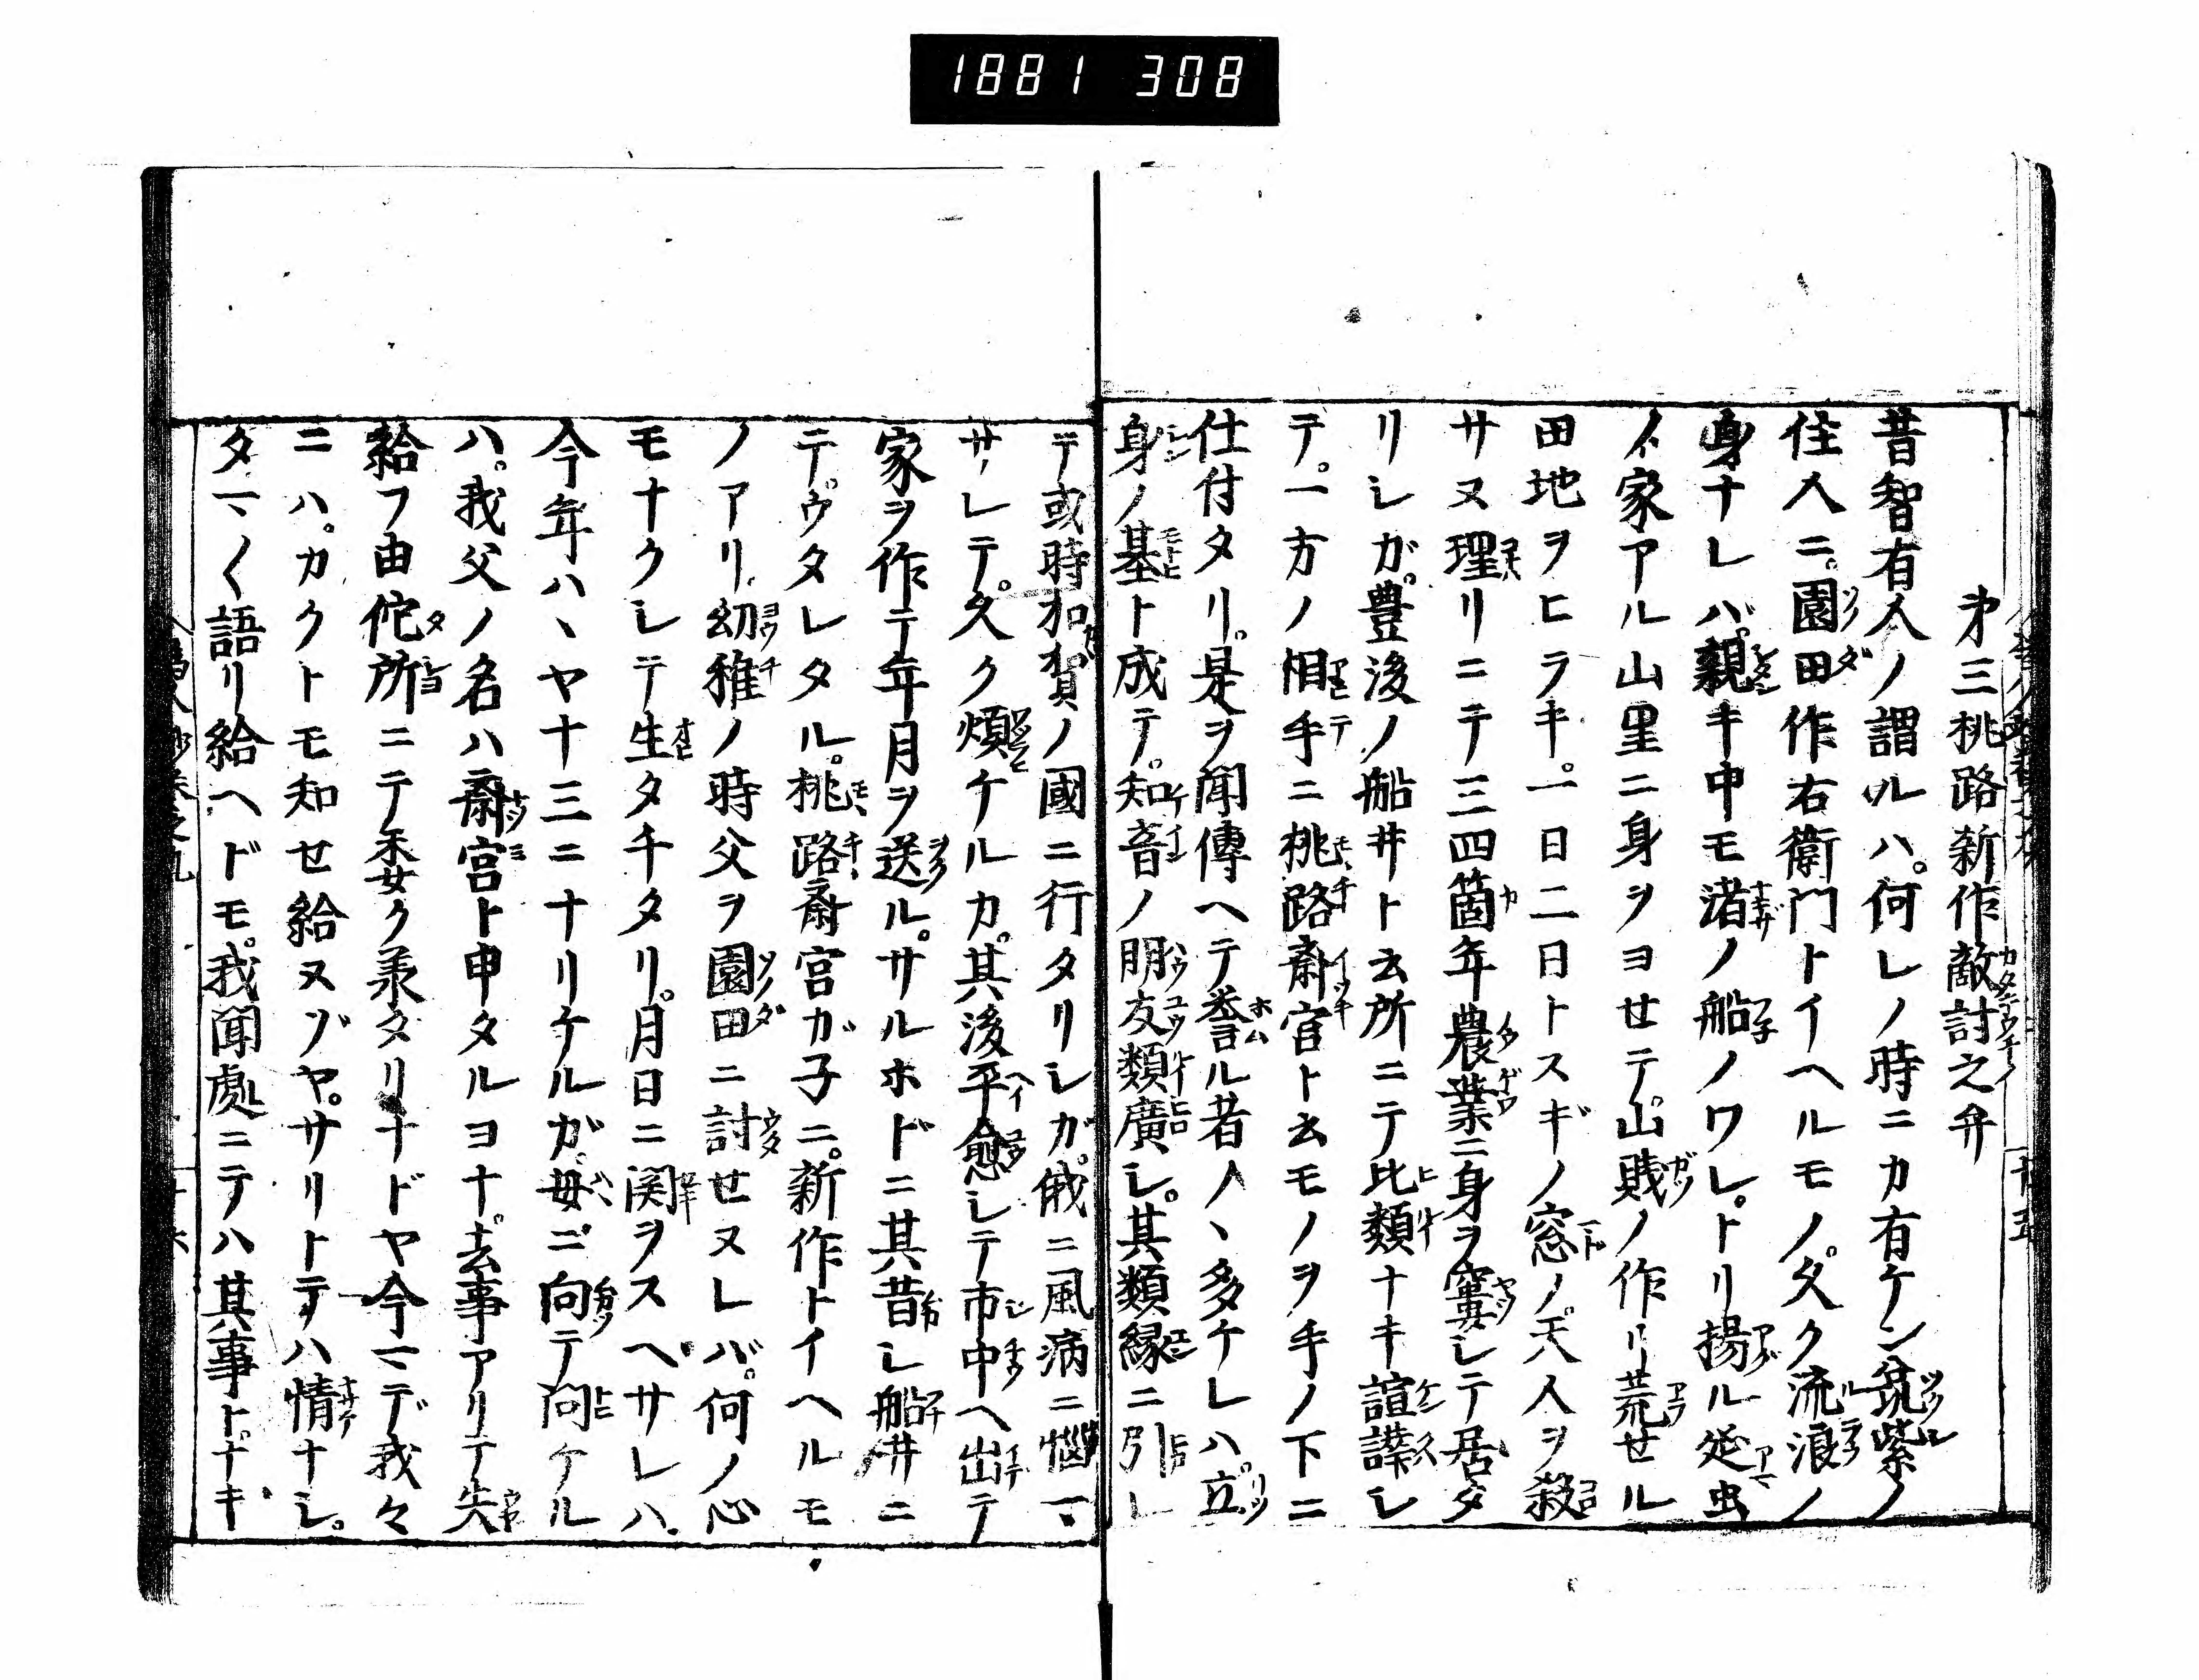 1881 308
才三桃路新作敵討之弁
昔智有人ノ謂ルハ。何レノ時ニカ有ケン筑紫ノ
住人ニ。園田作右衛門トイヘルモノ。久ク流浪ノ
身ナレバ。親キ中モ渚ノ船ノワレ。トリ揚ル蜑
ノ家アル山里ニ身ヲヨセテ。山賤ノ作リ荒セル
田地ヲヒラキ。一日二日トスギノ窓ノ。天人ヲ殺
サヌ理リニテ三四箇年農業ニ身ヲ窶シテ居タ
リシガ。豊後ノ船井ト云所ニテ比類ナキ諠譁シ
テ。一方ノ相手ニ桃路斎宮ト云モノヲ手ノ下ニ
仕付タリ。是ヲ聞傳ヘテ誉ル者ノヽ多ケレハ。立
身ノ基ト成テ。知音ノ朋友類廣シ。其類縁ニ引レ
テ或時加賀ノ國ニ行タリシガ。俄ニ風病ニ悩マ
サレテ。久ク煩ケルカ。其後平愈シテ市中ヘ出テ
家ヲ作テ年月ヲ送ル。サルホドニ其昔シ船井ニ
テ。ウタレタル。桃路斎宮ガ子ニ。新作トイヘルモ
ノアリ。幼稚ノ時父ヲ園田ニ討セヌレバ。何ノ心
モナクシテ生タチタリ。月日ニ関ヲスヘサレハ。
今年ハヽヤ十三ニナリケルガ。母ニ向テ問ケル
ハ。我父ノ名ハ斎宮ト申タルヨナ。去事アリテ失
給フ由佗所ニテ委ク羕タリナドヤ今マデ我々
ニハ。カクトモ知セ給ヌゾヤ。サリトテハ情ナシ。
タマ〱語リ給ヘドモ。我聞處ニテハ其事ト。ナキ